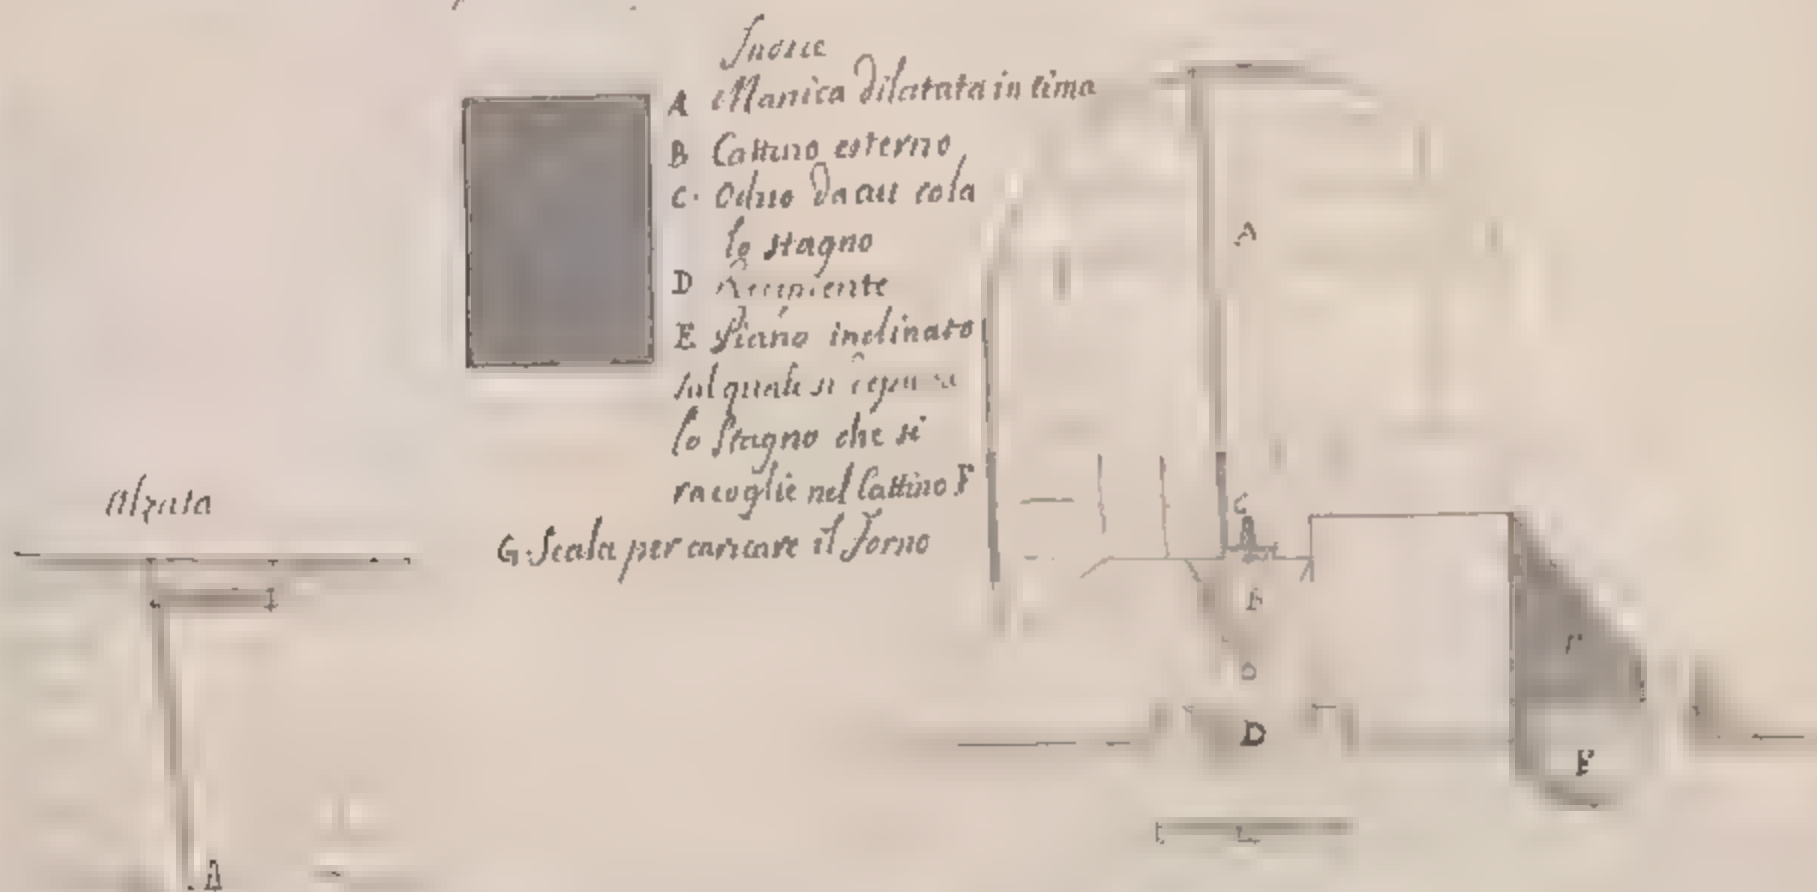 Indice
A Manica dilatata in cima
B Cattino esterno
C. Ochio da cui cola
lo stagno
D Recipiente
E Piano inclinato
sul quale si
lo stagno che si
racoglie nel Cattino F
G. Scala per caricare il Forno
Alzata
A
C
B
D
F
A